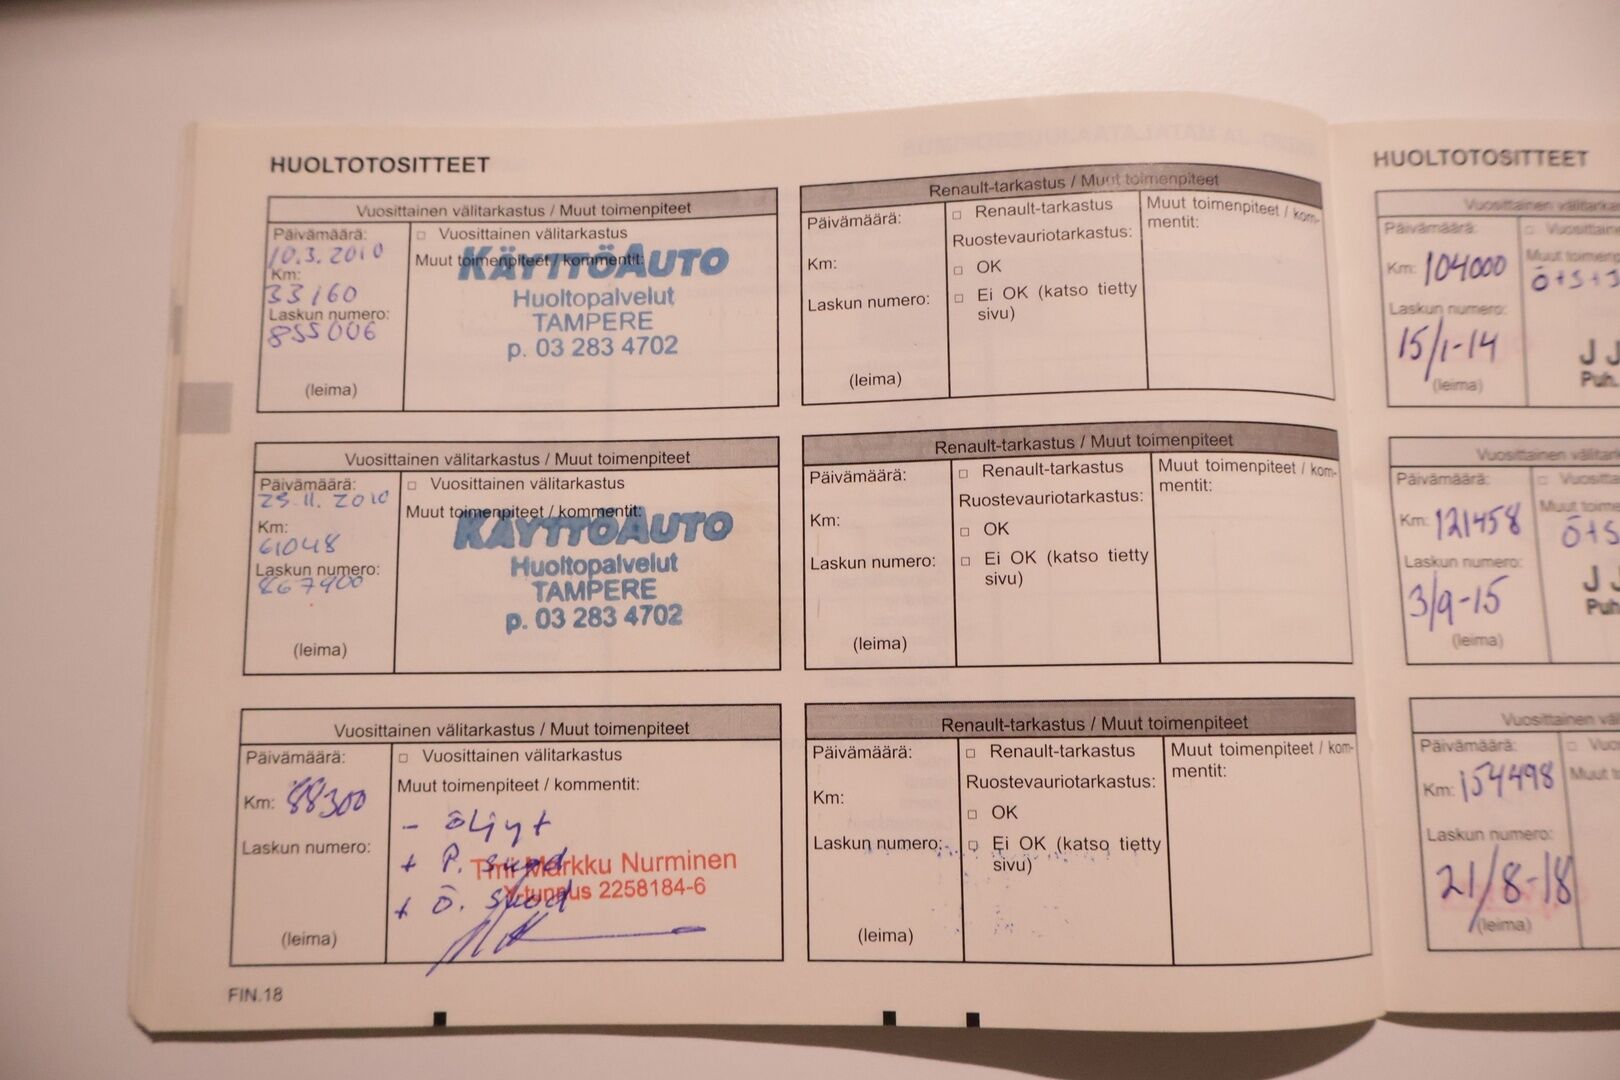 HUOLTOTOSITTEET
Vuosittainen välitarkastus / Muut toimenpiteet
Päivämäärä:
10.3. 2010
Km:
33160
Laskun numero:
855006
(leima)
□ Vuosittainen välitarkastus
Muut toimenpiteet / kommentit:
KÄYTTÖAUTO
Huoltopalvelut
TAMPERE
p. 03 283 4702
Renault-tarkastus / Muut toimenpiteet
Päivämäärä:
Km:
Laskun numero:
(leima)
□ Renault-tarkastus
Ruostevauriotarkastus:
□ OK
□ Ei OK (katso tietty
sivu)
Muut toimenpiteet / kom-
mentit:
Vuosittainen välitarkastus / Muut toimenpiteet
Päivämäärä:
23.11. 2010
Km:
61048
Laskun numero:
867900
(leima)
□ Vuosittainen välitarkastus
Muut toimenpiteet / kommentit:
KÄYTTÖAUTO
Huoltopalvelut
TAMPERE
p. 03 283 4702
Renault-tarkastus / Muut toimenpiteet
Päivämäärä:
Km:
Laskun numero:
(leima)
□ Renault-tarkastus
Ruostevauriotarkastus:
□ OK
□ Ei OK (katso tietty
sivu)
Muut toimenpiteet / kom-
mentit:
Vuosittainen välitarkastus / Muut toimenpiteet
Päivämäärä:
Km: 88300
Laskun numero:
(leima)
□ Vuosittainen välitarkastus
Muut toimenpiteet / kommentit:
- öljyt
+ P. suod
+ Ö. suod
Tmi Markku Nurminen
Y-tunnus 2258184-6
Renault-tarkastus / Muut toimenpiteet
Päivämäärä:
Km:
Laskun numero:
(leima)
□ Renault-tarkastus
Ruostevauriotarkastus:
□ OK
□ Ei OK (katso tietty
sivu)
Muut toimenpiteet / kom-
mentit:
FIN.18
HUOLTOTOSITTEET
Vuosittainen välitarka
Päivämäärä:
Km: 104000
Laskun numero:
15/1-14
(leima)
□ Vuosittaine
Muut toimenp
Ö+S+
J J
Puh.
Vuosittainen välitar
Päivämäärä:
Km: 121458
Laskun numero:
3/9-15
(leima)
□ Vuositta
Muut toime
Ö+S
J J
Puh
Vuosittainen väl
Päivämäärä:
Km: 154498
Laskun numero:
21/8-18
(leima)
□ Vuo
Muut t